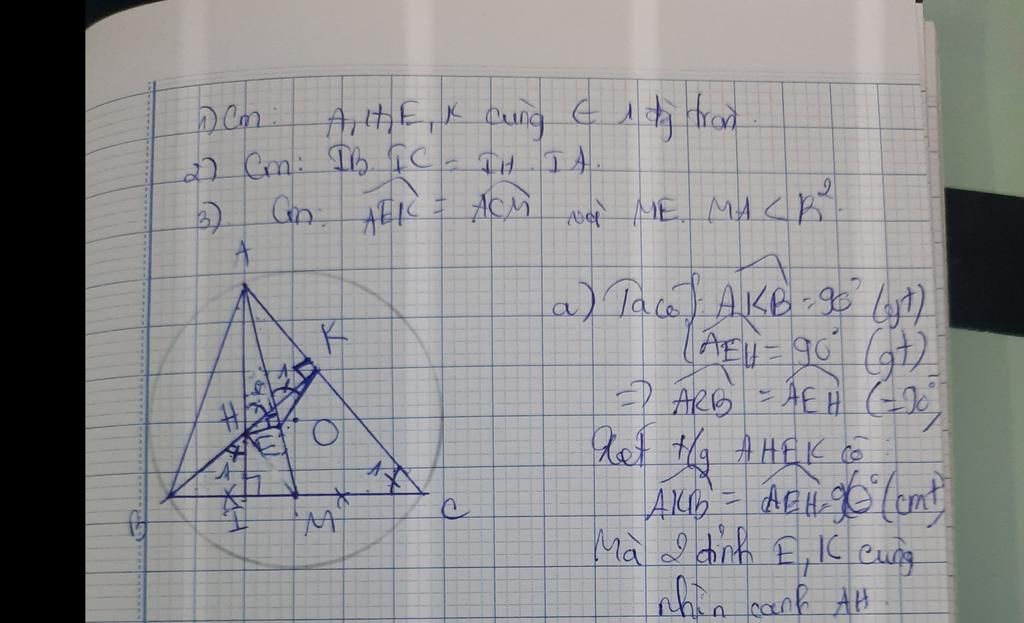 1) Cm: A, H, E, K cùng ∈ 1 đg tròn.
2) Cm: IB. IC = IH. IA.
3) Cm: AEK = ACM và ME. MA < R²
A
K
H
E
O
1
1
B
I
M
C
a) Ta có: AKB = 90° (gt)
AEH = 90° (gt)
=> AKB = AEH (=90°)
Xét t/g AHEK có:
AKB = AEH = 90° (cmt)
Mà 2 đỉnh E, K cùng
nhìn cạnh AH.